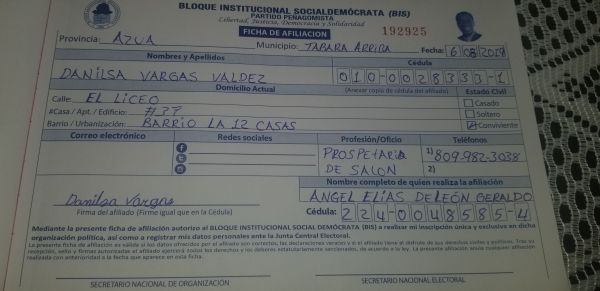 BLOQUE INSTITUCIONAL SOCIALDEMÓCRATA (BIS)
PARTIDO PEÑAGOMISTA
Libertad, Justicia, Democracia y Solidaridad
FICHA DE AFILIACION
192925
Provincia: AZUA Municipio: TABARA ARRIBA Fecha: 6/08/2018
Nombres y Apellidos Cédula
DANILSA VARGAS VALDEZ 010-0028333-1
Domicilio Actual (Anexar copia de cédula del afiliado) Estado Civil
Calle: EL LICEO Casado
#Casa / Apt. / Edificio: #37 Soltero
Barrio / Urbanización: BARRIO LA 12 CASAS Conviviente
Correo electrónico Redes sociales Profesión/Oficio Teléfonos
PROSPETARIA 1) 809-982-3038
DE SALON 2)
Nombre completo de quien realiza la afiliación
Danilsa Vargas ANGEL ELIAS DE LEÓN GERALDO
Firma del afiliado (Firme igual que en la Cédula) Cédula: 224-0048585-4
Mediante la presente ficha de afiliación autorizo al BLOQUE INSTITUCIONAL SOCIAL DEMÓCRATA (BIS) a realizar mi inscripción única y exclusiva en dicha
organización política, así como a registrar mis datos personales ante la Junta Central Electoral.
La presente ficha de afiliación es válida si los datos ofrecidos por el afiliado son correctos, las declaraciones veraces y si el afiliado tiene el disfrute de sus derechos civiles y políticos. Tras su
recepción, sello y firmas autorizadas el afiliado ejercerá todos los derechos y deberes estatutariamente sancionados, de acuerdo a la ley. La presente afiliación anula cualquier afiliación
realizada con anterioridad a la fecha que aparece en esta ficha.
SECRETARIO NACIONAL DE ORGANIZACIÓN SECRETARIO NACIONAL ELECTORAL